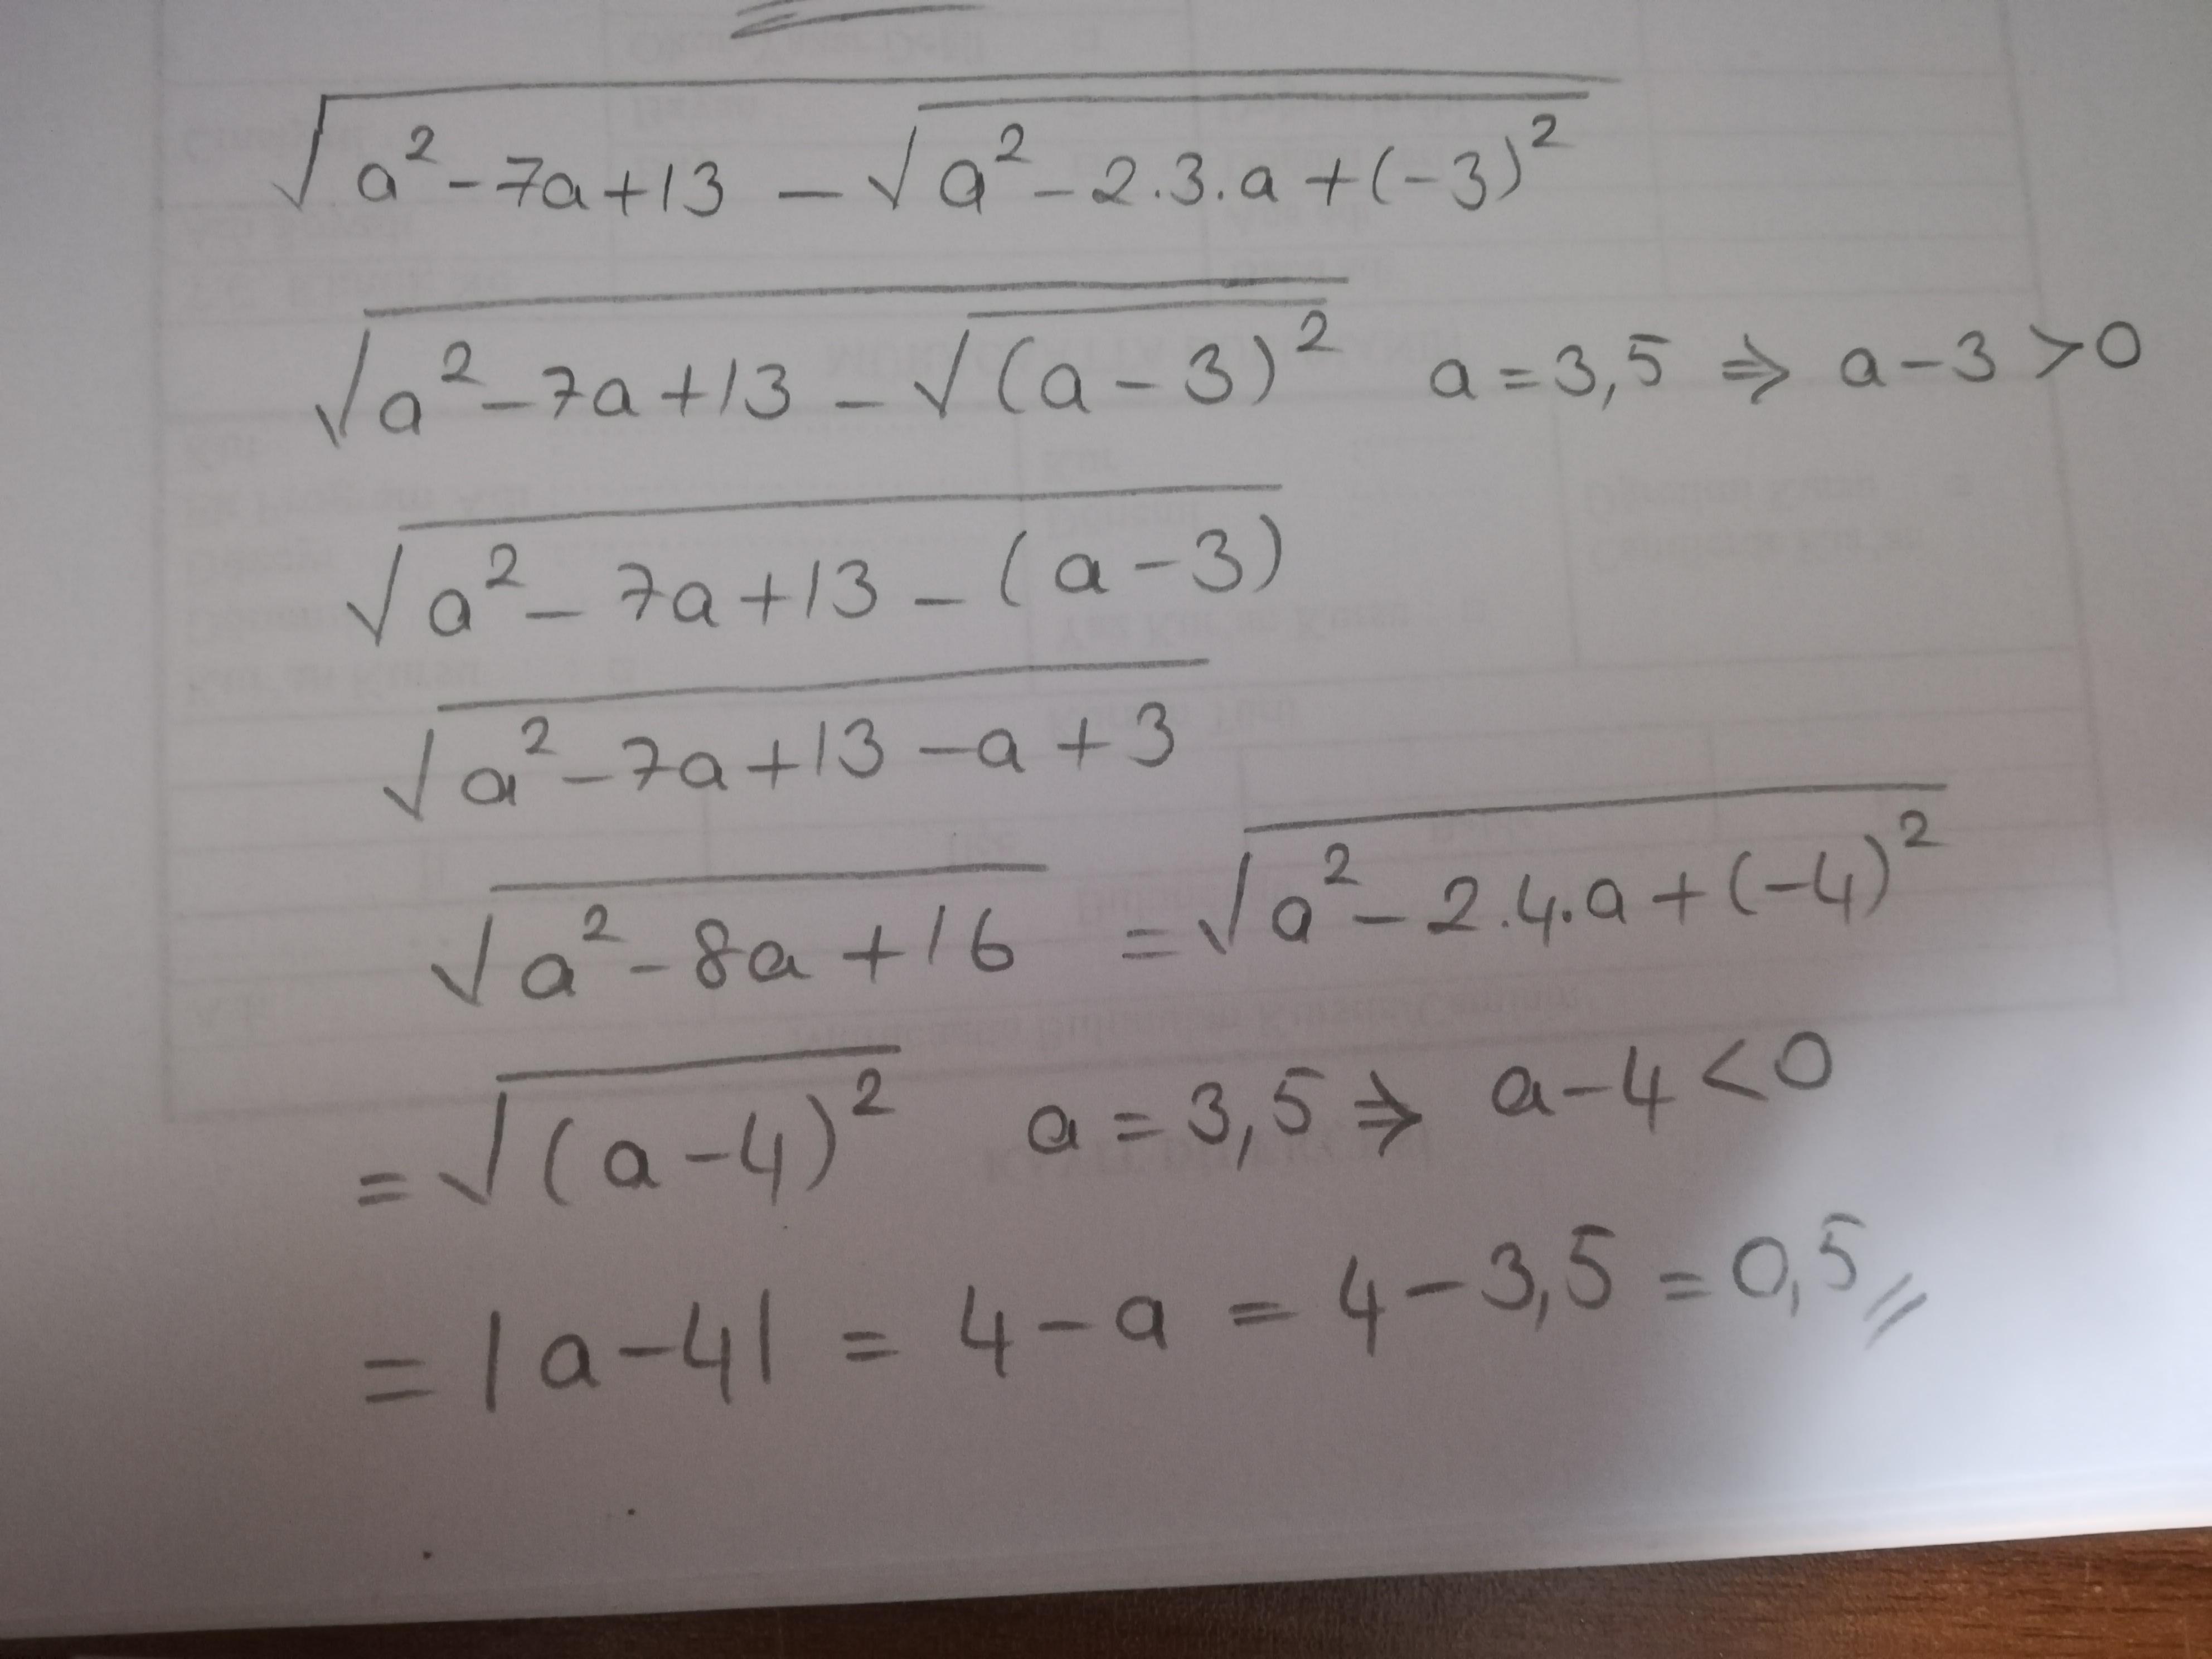 √(a² - 7a + 13 - √(a² - 2.3.a + (-3)²))
√(a² - 7a + 13 - √((a - 3)²)) a = 3,5 ⇒ a - 3 > 0
√(a² - 7a + 13 - (a - 3))
√(a² - 7a + 13 - a + 3)
√(a² - 8a + 16) = √(a² - 2.4.a + (-4)²)
= √((a - 4)²) a = 3,5 ⇒ a - 4 < 0
= |a - 4| = 4 - a = 4 - 3,5 = 0,5